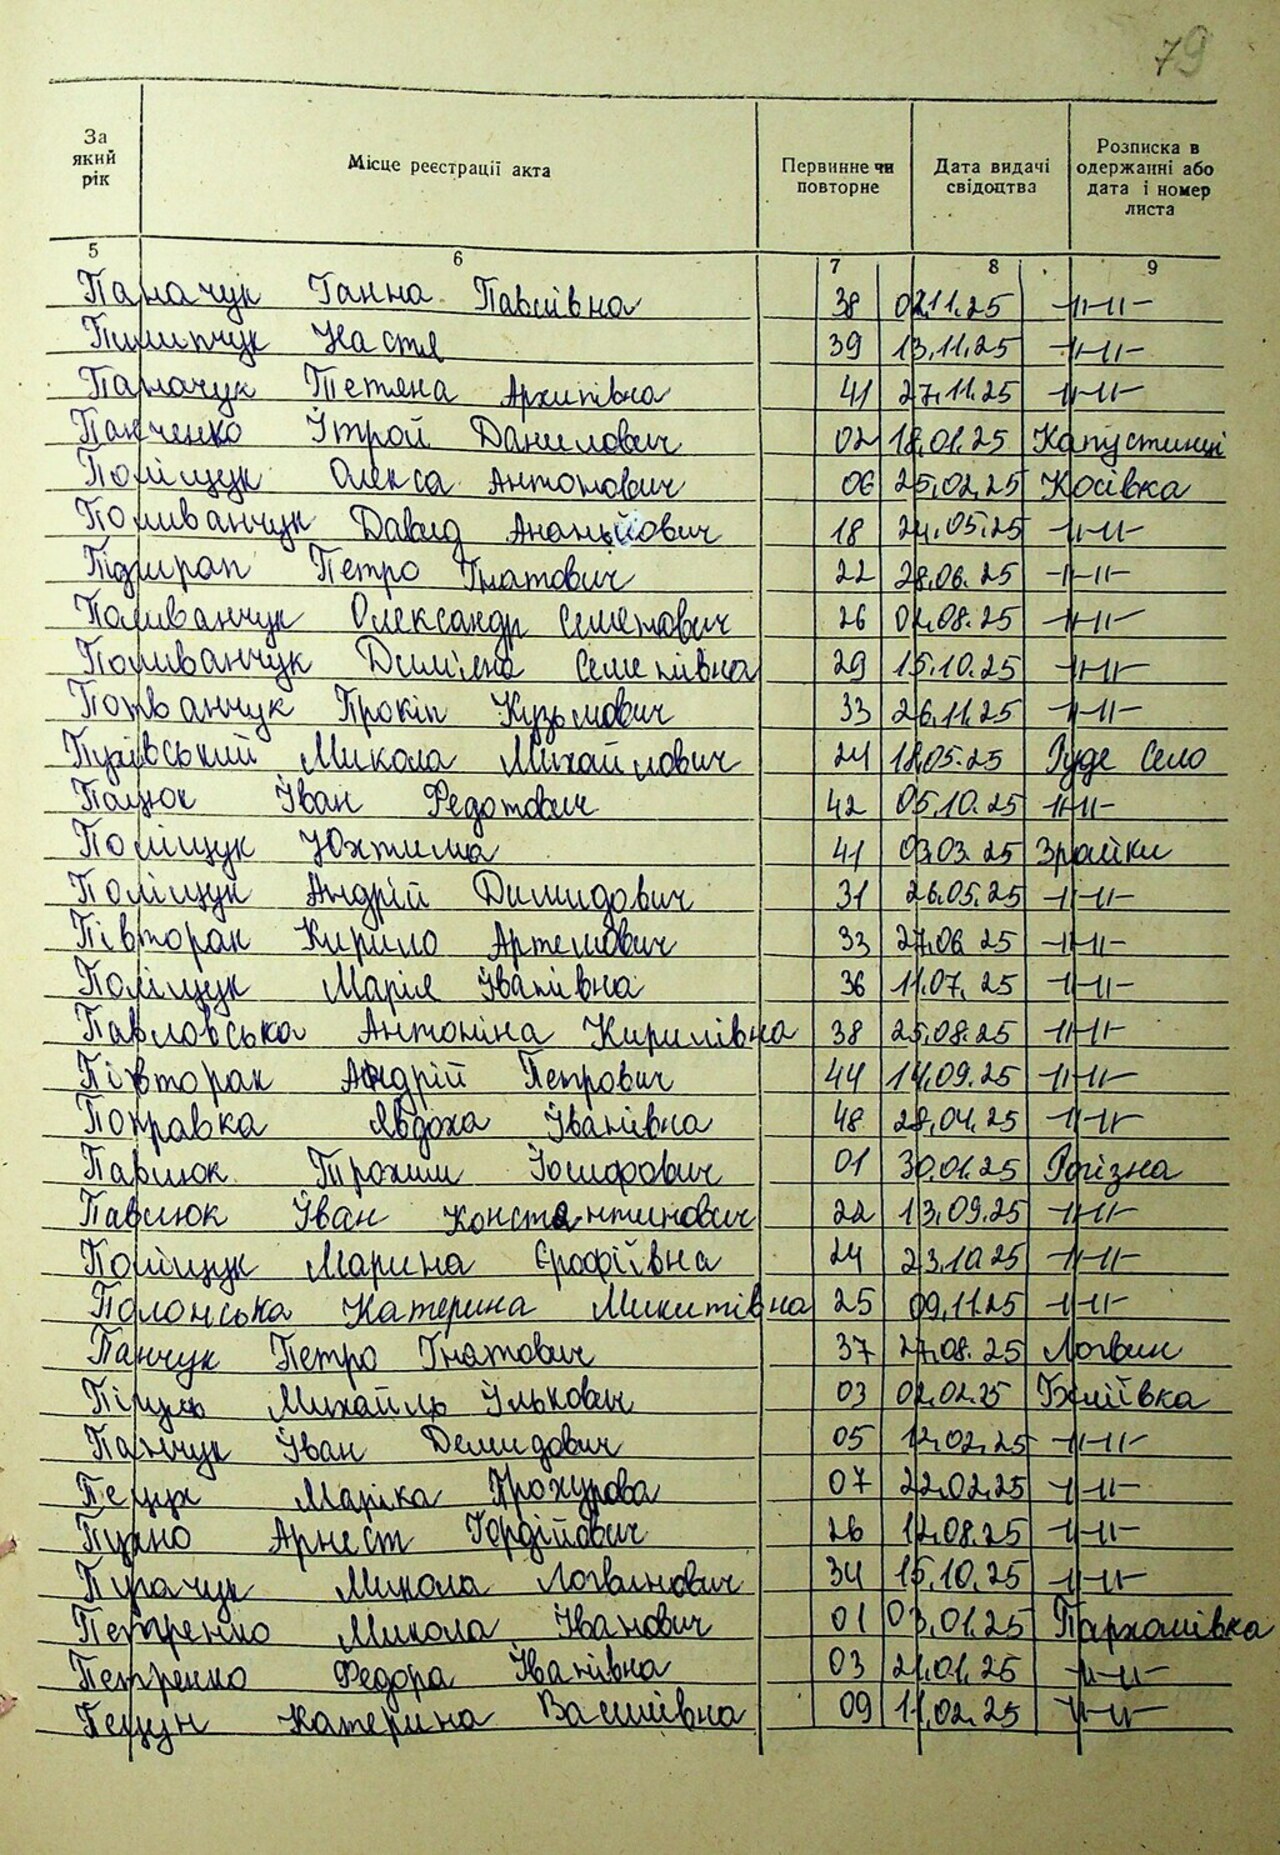 79
За який рік
Місце реєстрації акта
Первинне чи повторне
Дата видачі свідоцтва
Розписка в одержанні або дата і номер листа
5 6 7 8 9
Паламачук Ганна Павлівна 38 02.11.25 -\\-\\-
Пилипчук Настя 39 13.11.25 -\\-\\-
Палачук Тетяна Архипівна 41 27.11.25 -\\-\\-
Панченко Ітрой Данилович 02 18.01.25 Капустинці
Поліщук Олекса Антонович 06 25.02.25 Косівка
Поливанчук Давид Ананьйович 18 24.05.25 -\\-\\-
Петро Гнатович 22 28.06.25 -\\-\\-
Поливанчук Олександр Семенович 26 02.08.25 -\\-\\-
Поливанчук Семенівна 29 15.10.25 -\\-\\-
Поливанчук Прокіп Кузьмович 33 26.11.25 -\\-\\-
Микола Михайлович 24 18.05.25 Руде Село
Пацюк Іван Федотович 42 05.10.25 -\\-\\-
Поліщук Юхтима 41 03.03.25 Зрайки
Поліщук Андрій Демидович 31 26.05.25 -\\-\\-
Півторак Кирило Артемович 33 27.06.25 -\\-\\-
Поліщук Марія Іванівна 36 11.07.25 -\\-\\-
Павловська Антоніна Кирилівна 38 25.08.25 -\\-\\-
Півторак Андрій Петрович 44 14.09.25 -\\-\\-
Покравка Явдоха Іванівна 48 28.04.25 -\\-\\-
Павлюк Трохим Йосифович 01 30.01.25 Рогізна
Павлюк Іван Константинович 22 13.09.25 -\\-\\-
Поліщук Марина Єрофіївна 24 23.10.25 -\\-\\-
Полонська Катерина Микитівна 25 09.11.25 -\\-\\-
Панчук Петро Гнатович 37 27.08.25 Логвин
Михайль Ількович 03 02.02.25
Панчук Іван Демидович 05 12.02.25 -\\-\\-
Пещук Маріка Прохурова 07 22.02.25 -\\-\\-
Арнест Гордійович 26 12.08.25 -\\-\\-
Пугачук Микола Логвинович 34 15.10.25 -\\-\\-
Петренко Микола Іванович 01 03.01.25 Пархомівка
Петренко Федора Іванівна 03 21.01.25 -\\-\\-
Пецун Катерина Василівна 09 11.02.25 -\\-\\-